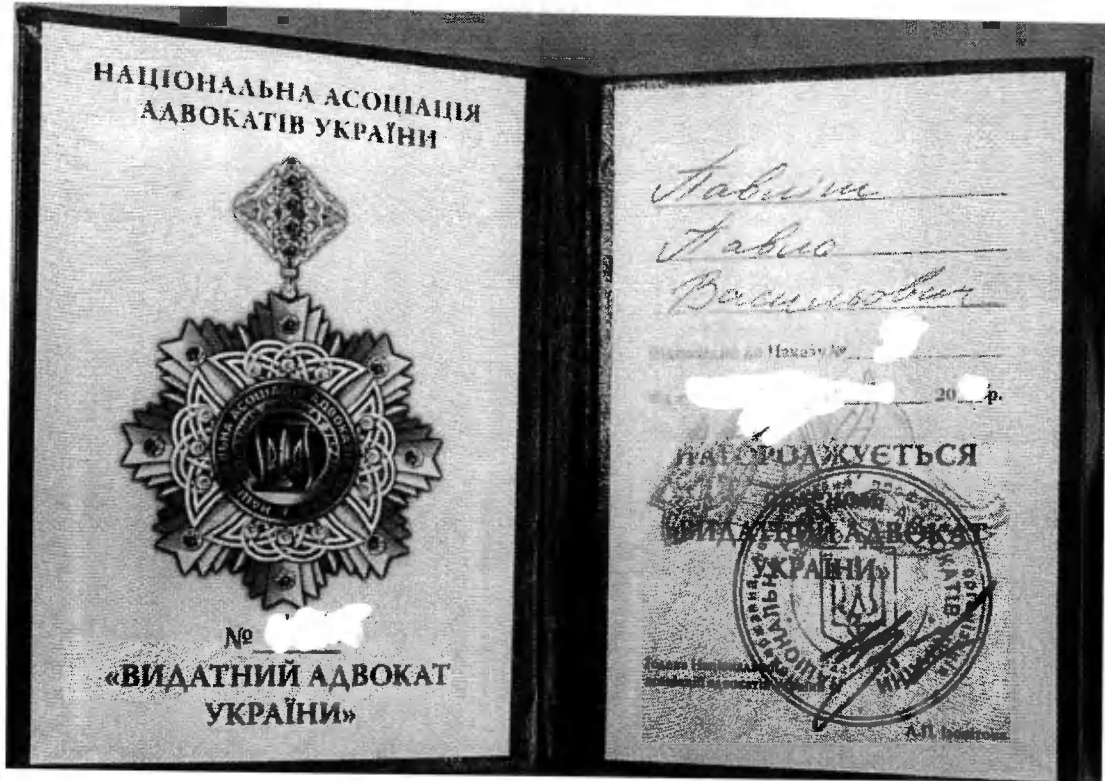 НАЦІОНАЛЬНА АСОЦІАЦІЯ
АДВОКАТІВ УКРАЇНИ
№
«ВИДАТНИЙ АДВОКАТ
УКРАЇНИ»
Павлиш
Павло
Васильович
Наказу №
20 р.
НАГОРОДЖУЄТЬСЯ
«ВИДАТНИЙ АДВОКАТ
УКРАЇНИ»